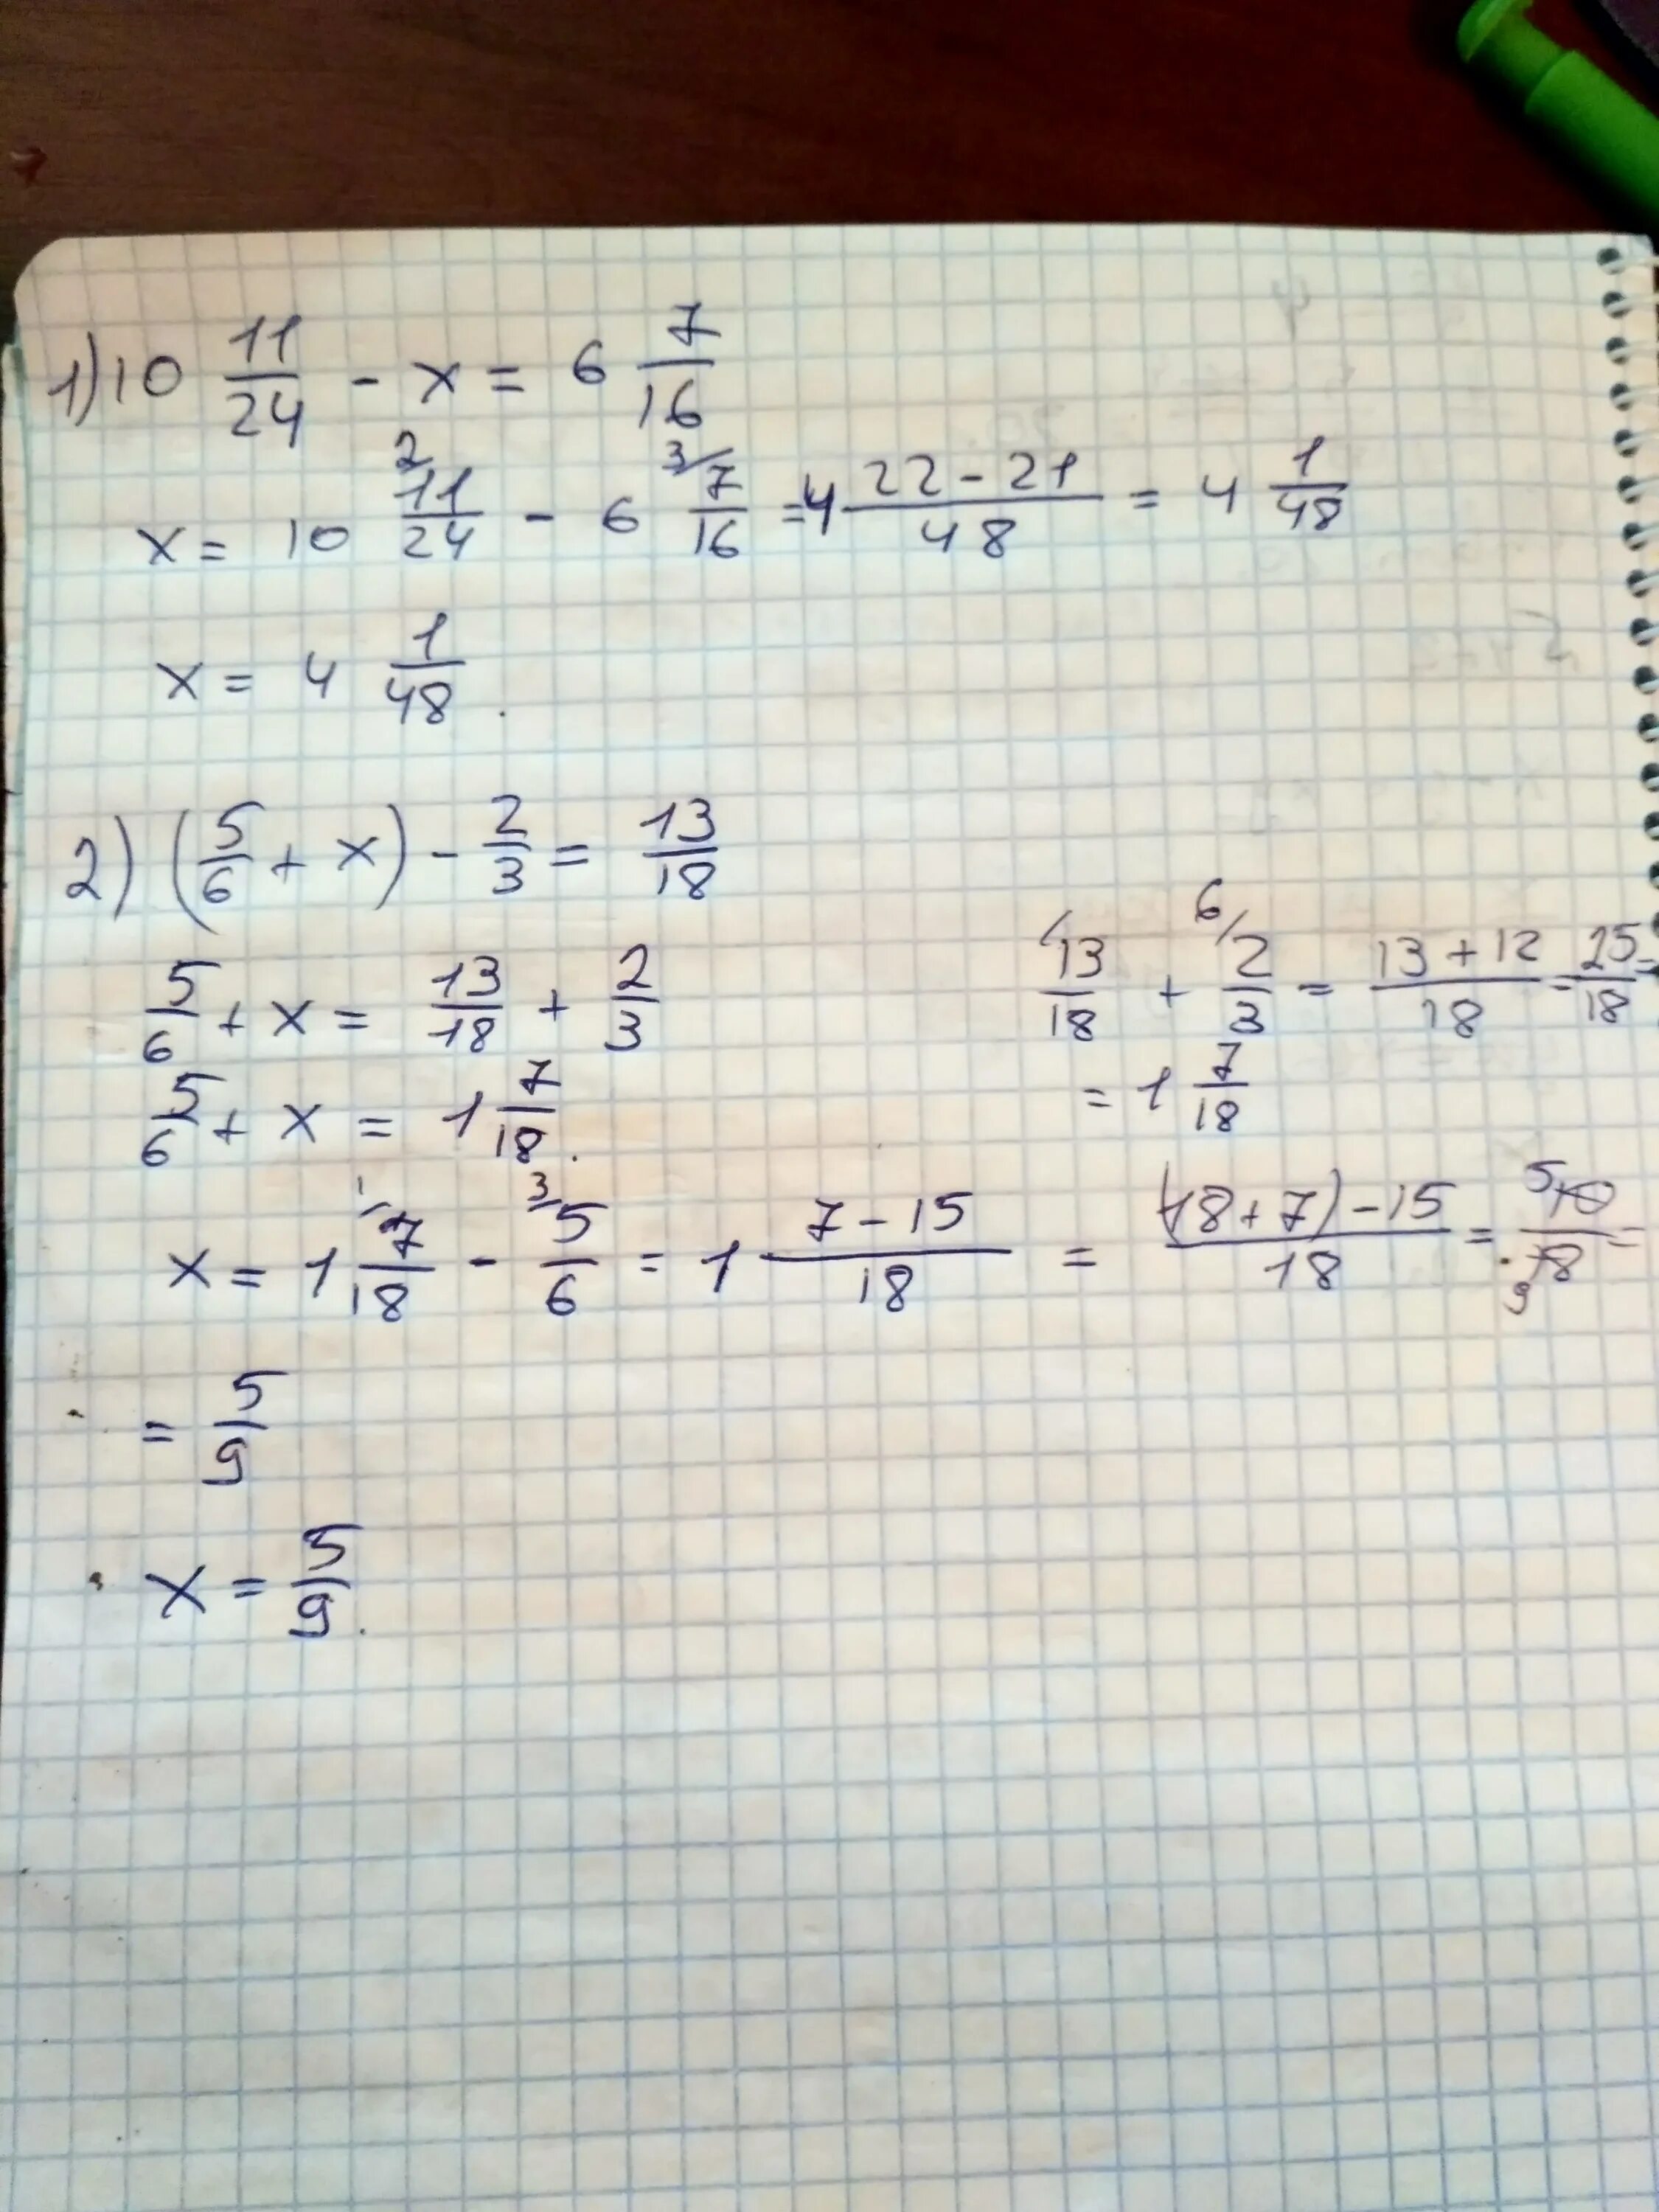 1) 10 11/24 - x = 6 7/16
x = 10 2/ 11/24 - 6 3/ 7/16 = 4 22-21/48 = 4 1/48
x = 4 1/48.
2) (5/6 + x) - 2/3 = 13/18
5/6 + x = 13/18 + 2/3
13/18 + 6/ 2/3 = 13+12/18 = 25/18 =
= 1 7/18
5/6 + x = 1 7/18.
x = 1 1/ 7/18 - 3/ 5/6 = 1 7-15/18 = (18+7)-15/18 = 5 10/18 9 =
= 5/9
x = 5/9.